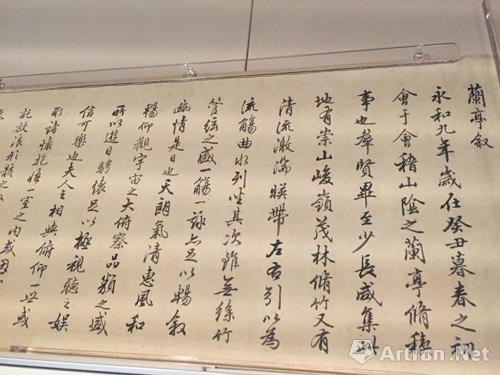 蘭亭叙
永和九年歲在癸丑暮春之初
會于會稽山陰之蘭亭脩禊
事也羣賢畢至少長咸集此
地有崇山峻嶺茂林脩竹又有
清流激湍暎帶左右引以為
流觴曲水列坐其次雖無絲竹
管絃之盛一觴一詠亦足以暢叙
幽情是日也天朗氣清惠風和
暢仰觀宇宙之大俯察品類之盛
所以遊目騁懷足以極視聽之娛
信可樂也夫人之相與俯仰一世或
取諸懷抱悟言一室之内或因
託放浪形骸之
Artron.Net